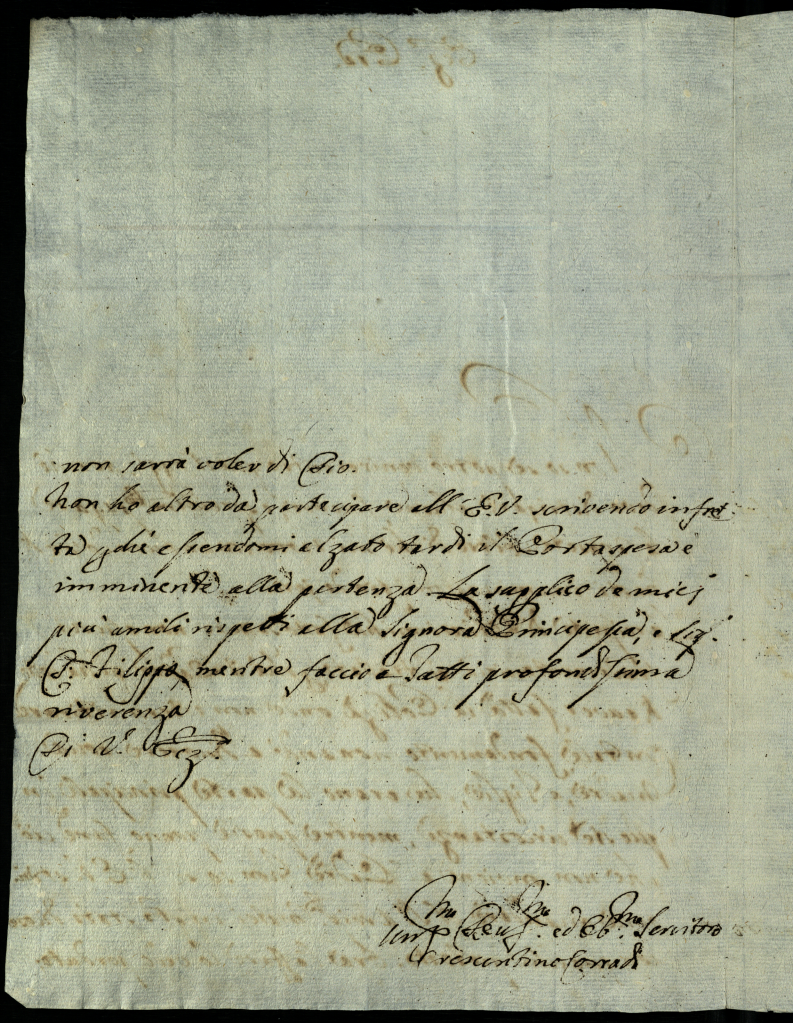 non sarrà voler di Dio.
Non ho altro da partecipare all' E.V. scrivendo in fret
ta p che essendomi alzato tardi il Portaspesa è
imminente alla partenza. La supplico de miei
più umili rispetti alla Signora Principessa, e Sig.
D. Filippo, mentre faccio a Tutti profondissima
riverenza
Di V. Ecz.
Um.mo Dev.mo ed Ob.mo Servitore
Crescentino Corradi